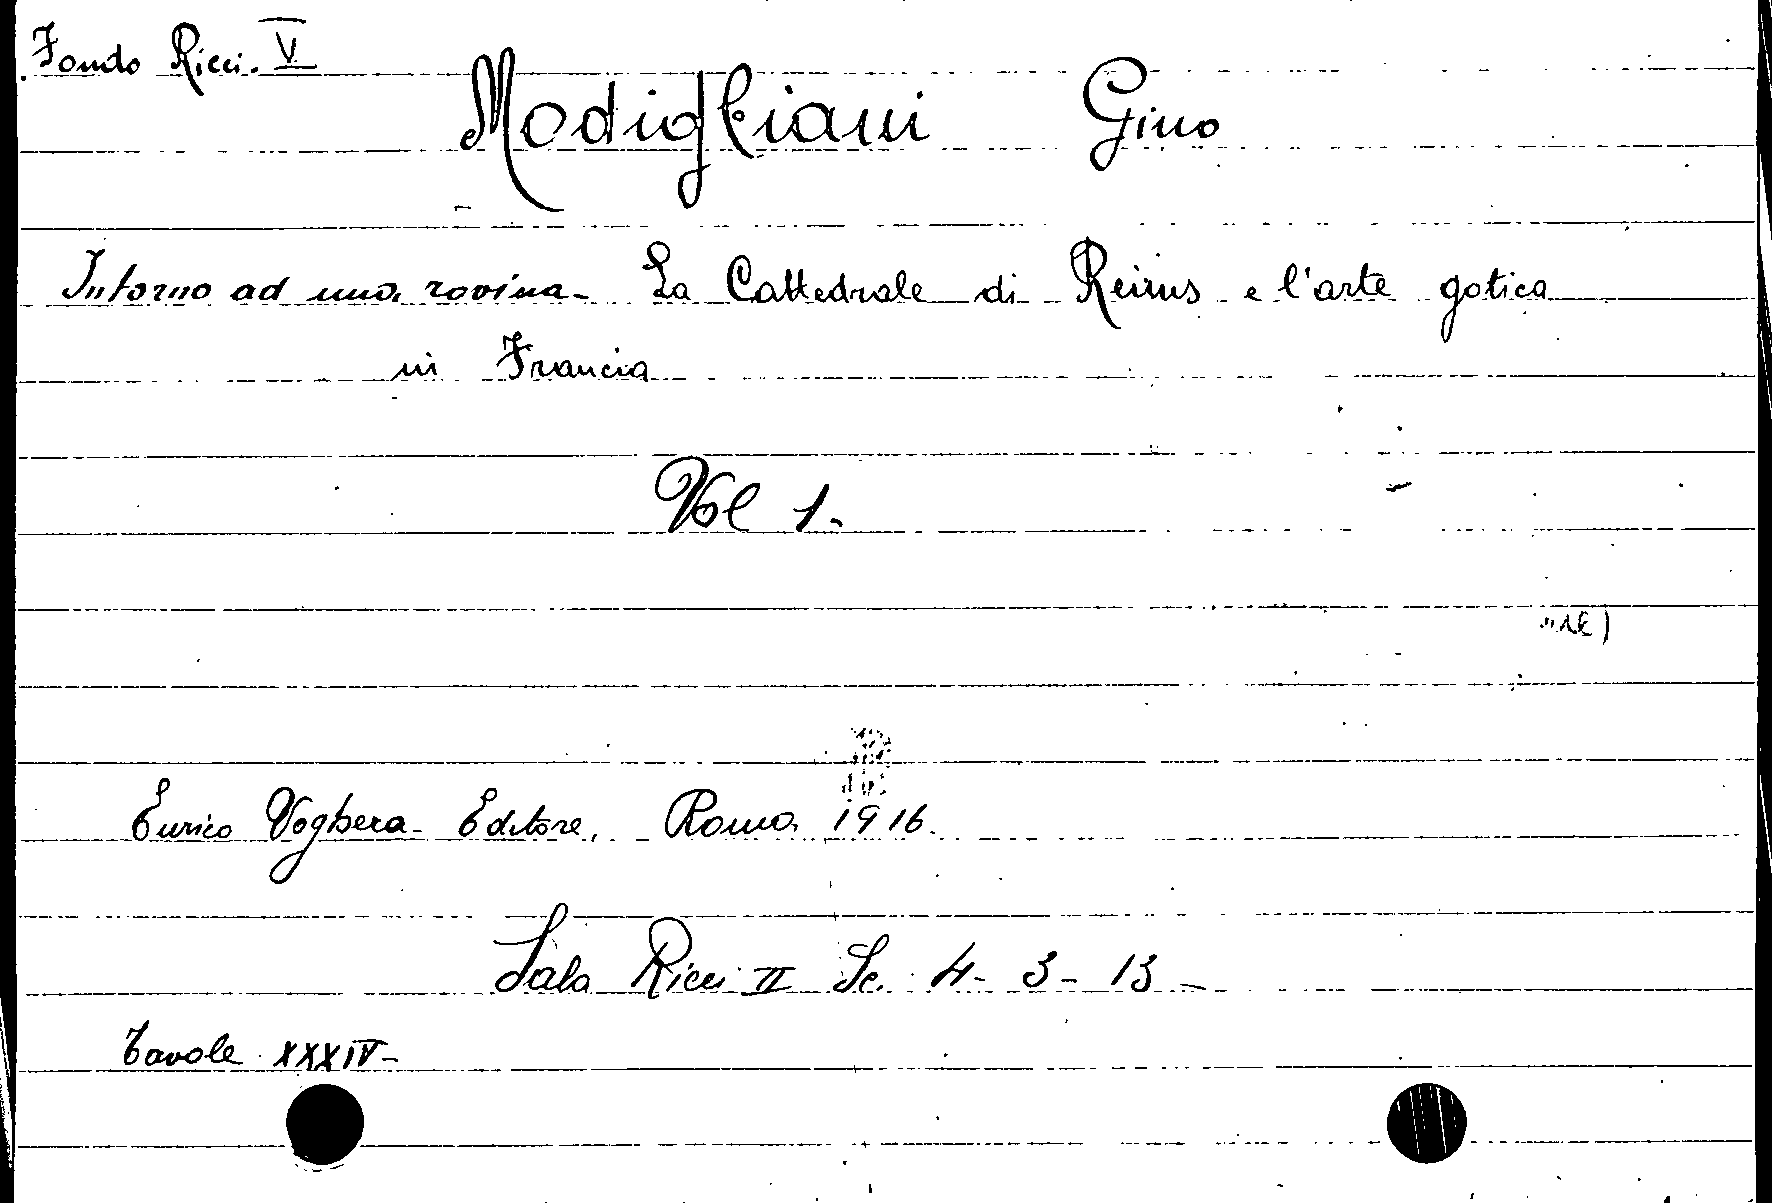 Fondo Ricci. V
Modigliani Gino
Intorno ad una rovina - La Cattedrale di Reims e l'arte gotica
in Francia
Vol 1.
Enrico Voghera Editore, Roma 1916.
Sala Ricci II Sc. 4 - 3 - 13 -
Tavole XXXIV -